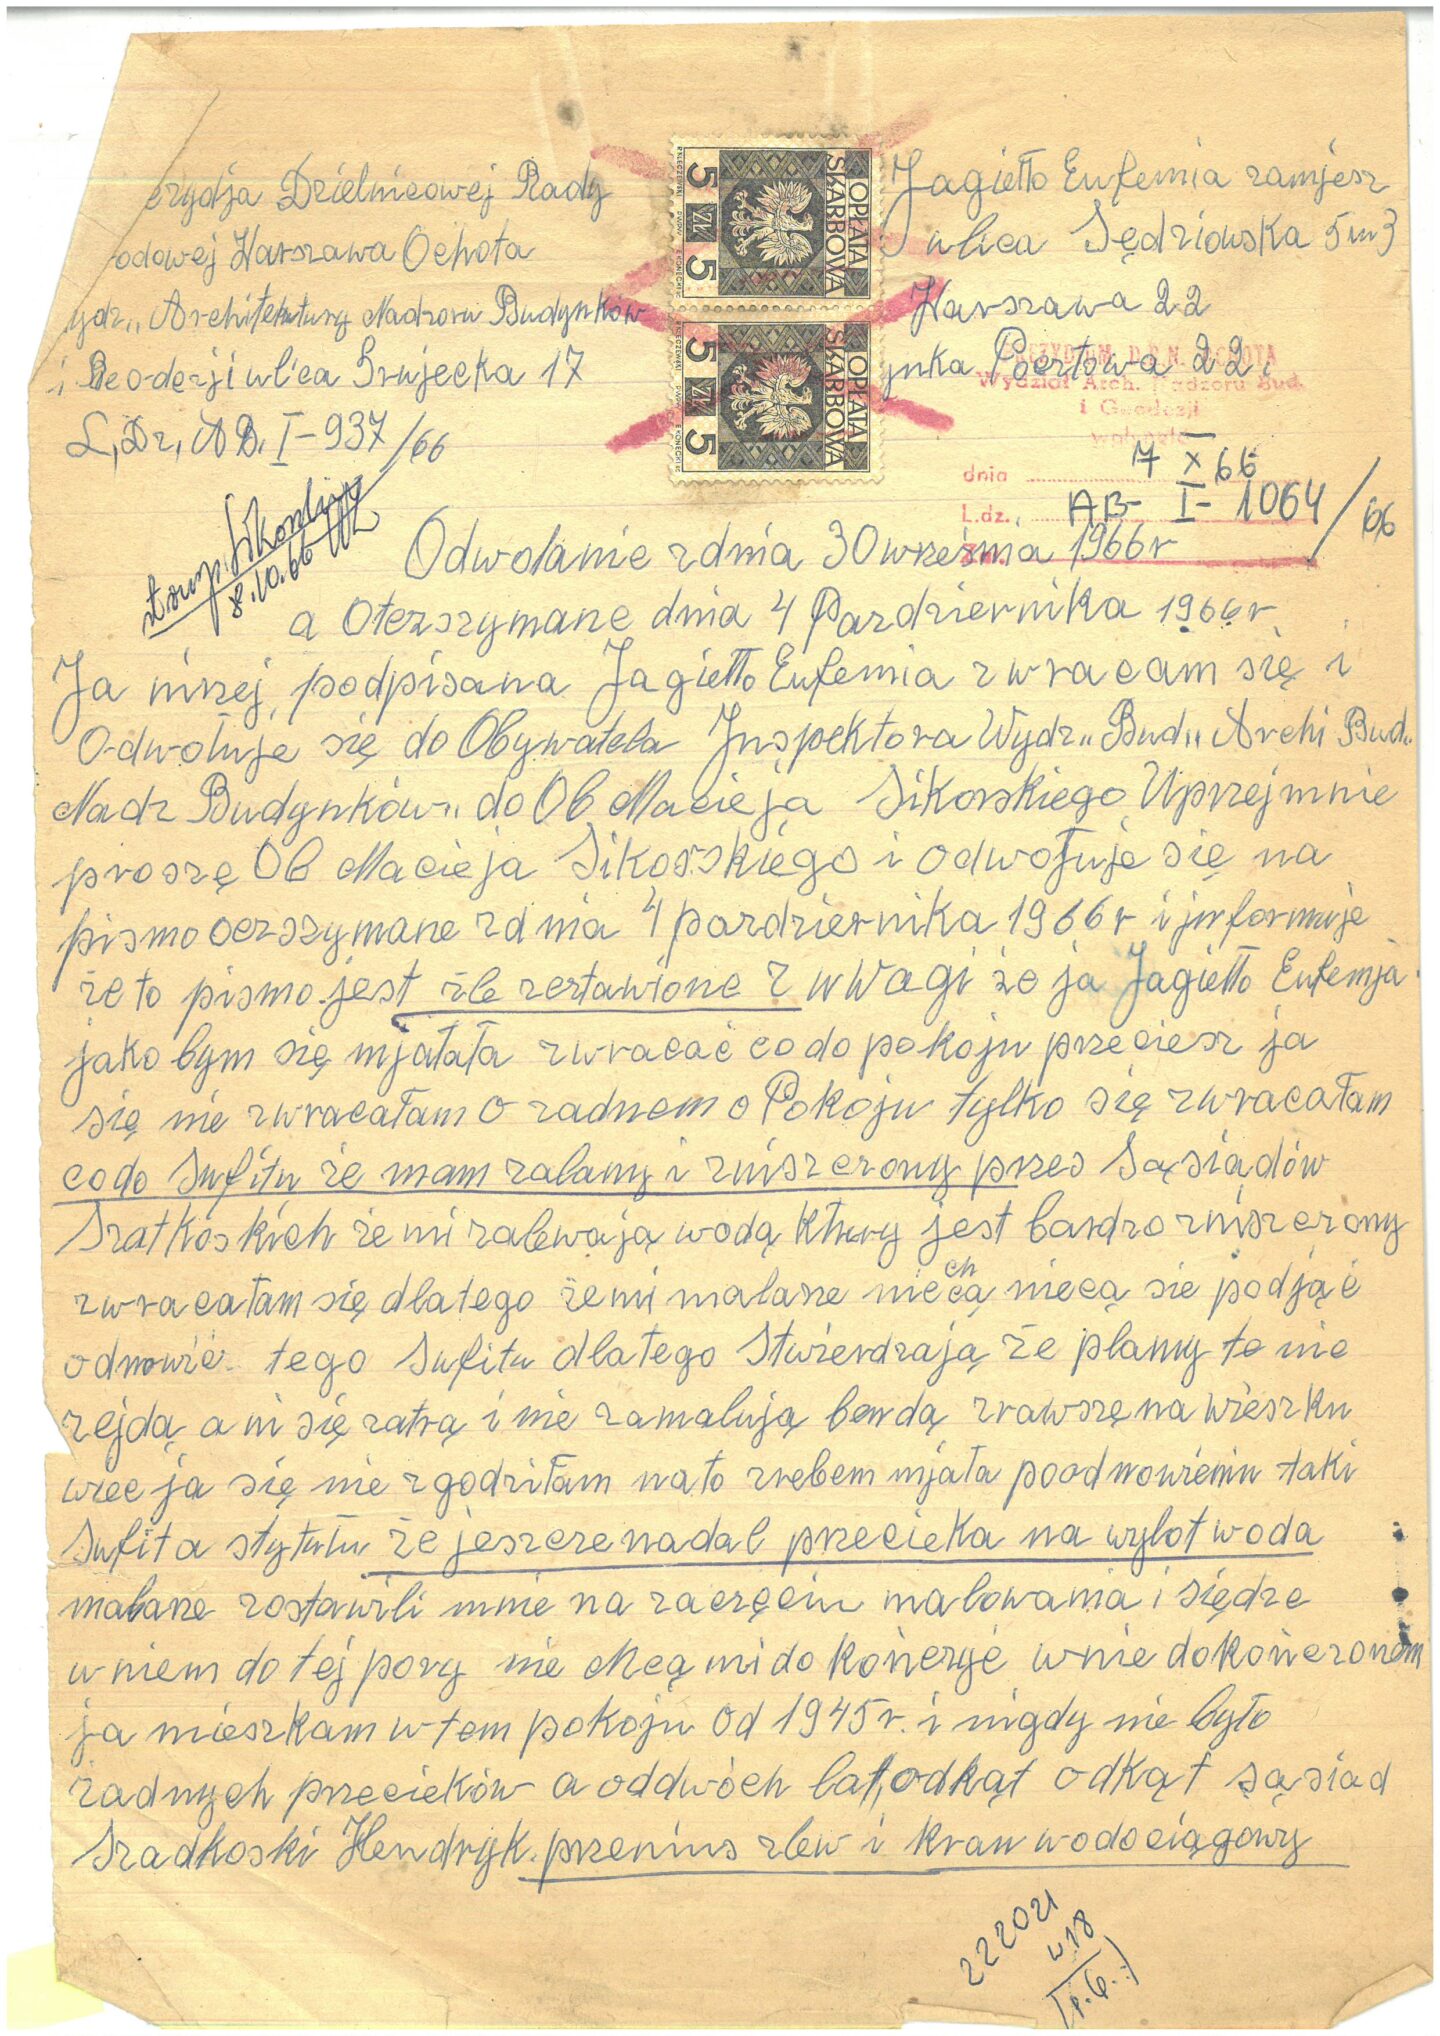 erydja Dzielnicowej Rady
odowej Warszawa Ochota
ydz,, Architektury Nadzoru Budynków
i Geodezji ulica Grujecka 17
L, Dz, AB. I-937/66
OPŁATA SKARBOWA
5 ZŁ 5
OPŁATA SKARBOWA
5 ZŁ 5
Jagiełło Eufemia zamjesz
ulica Sędziowska 5 m 3
Warszawa 22
ynka Poertowa 22.
PREZYDIUM D.R.N. OCHOTA
Wydział Arch. Nadzoru Bud.
i Geodezji
wpłynęło
dnia 7 X 66
L.dz. AB- I- 1064/66
8.10.66
Odwołanie zdnia 30 wrzesnia 1966r
a Oterzszymane dnia 4 Pazdziernika 1966r
Ja niżej, podpisana Jagiełło Eufemia zwracam się i
Odwołuje się do Obywatela Juspektora Wydz,, Bud,, Archi Bud,,
Nadz Budynków,, do Ob Macieja Sikorskiego Uprzejmnie
proszę Ob Macieja Sikorskiego i odwołuje się na
pismo oerzszymane zdnia 4 pazdziernika 1966r i jnformuje
że to pismo jest źle zestawione z wwagi że ja Jagiełło Eufemja
jako bym się mjałała zwracać co do pokoju przeciesz ja
się nie zwracałam o zadnem o Pokoju tylko się zwracałam
codo Sufitu że mam zalany i zniszczony przes Sąsiadów
Szatkoskich że mi zalewają wodą ktury jest bardzo zniszczony
zwracałam się dlatego że mi malarze niechcą niecą sie podjąć
odnowić tego Sufitu dlatego Stwierdzają że plamy te nie
zejdą ani się zatrą i nie zamalują bendą zrawszę na wieszku
wiec ja się nie zgodziłam na to zrebem mjała poodnowieniu taki
Sufit a stytułu że jeszcze nadal przecieka na wylot woda
malarze zostawili mnie na zaczęciu malowania i siędze
w niem do tej pory nie chcą mi do kończyć w nie dokończonem
ja mieszkam w tem pokoju od 1945r. i nigdy nie było
żadnych przecieków a oddwóch lat, odkąt odkąt sąsiad
Szadkoski Hendryk przenius zlew i kran wodociągowy
222021
w 18